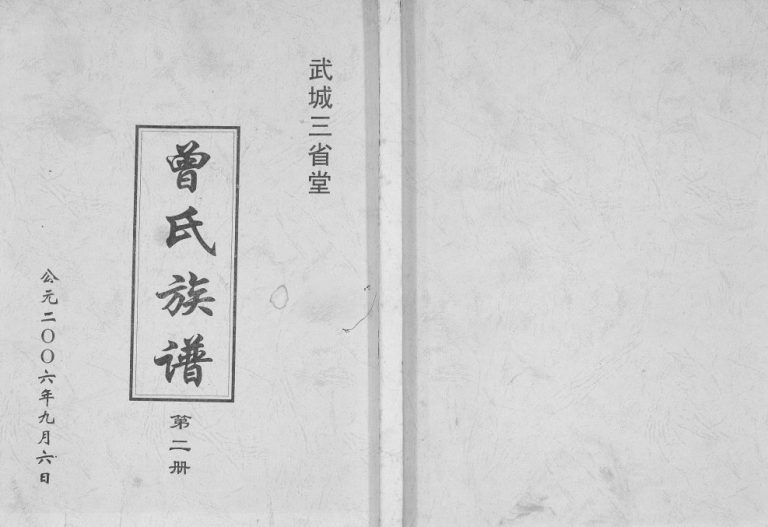 武城三省堂
曾氏族谱
第二册
公元二〇〇六年九月六日